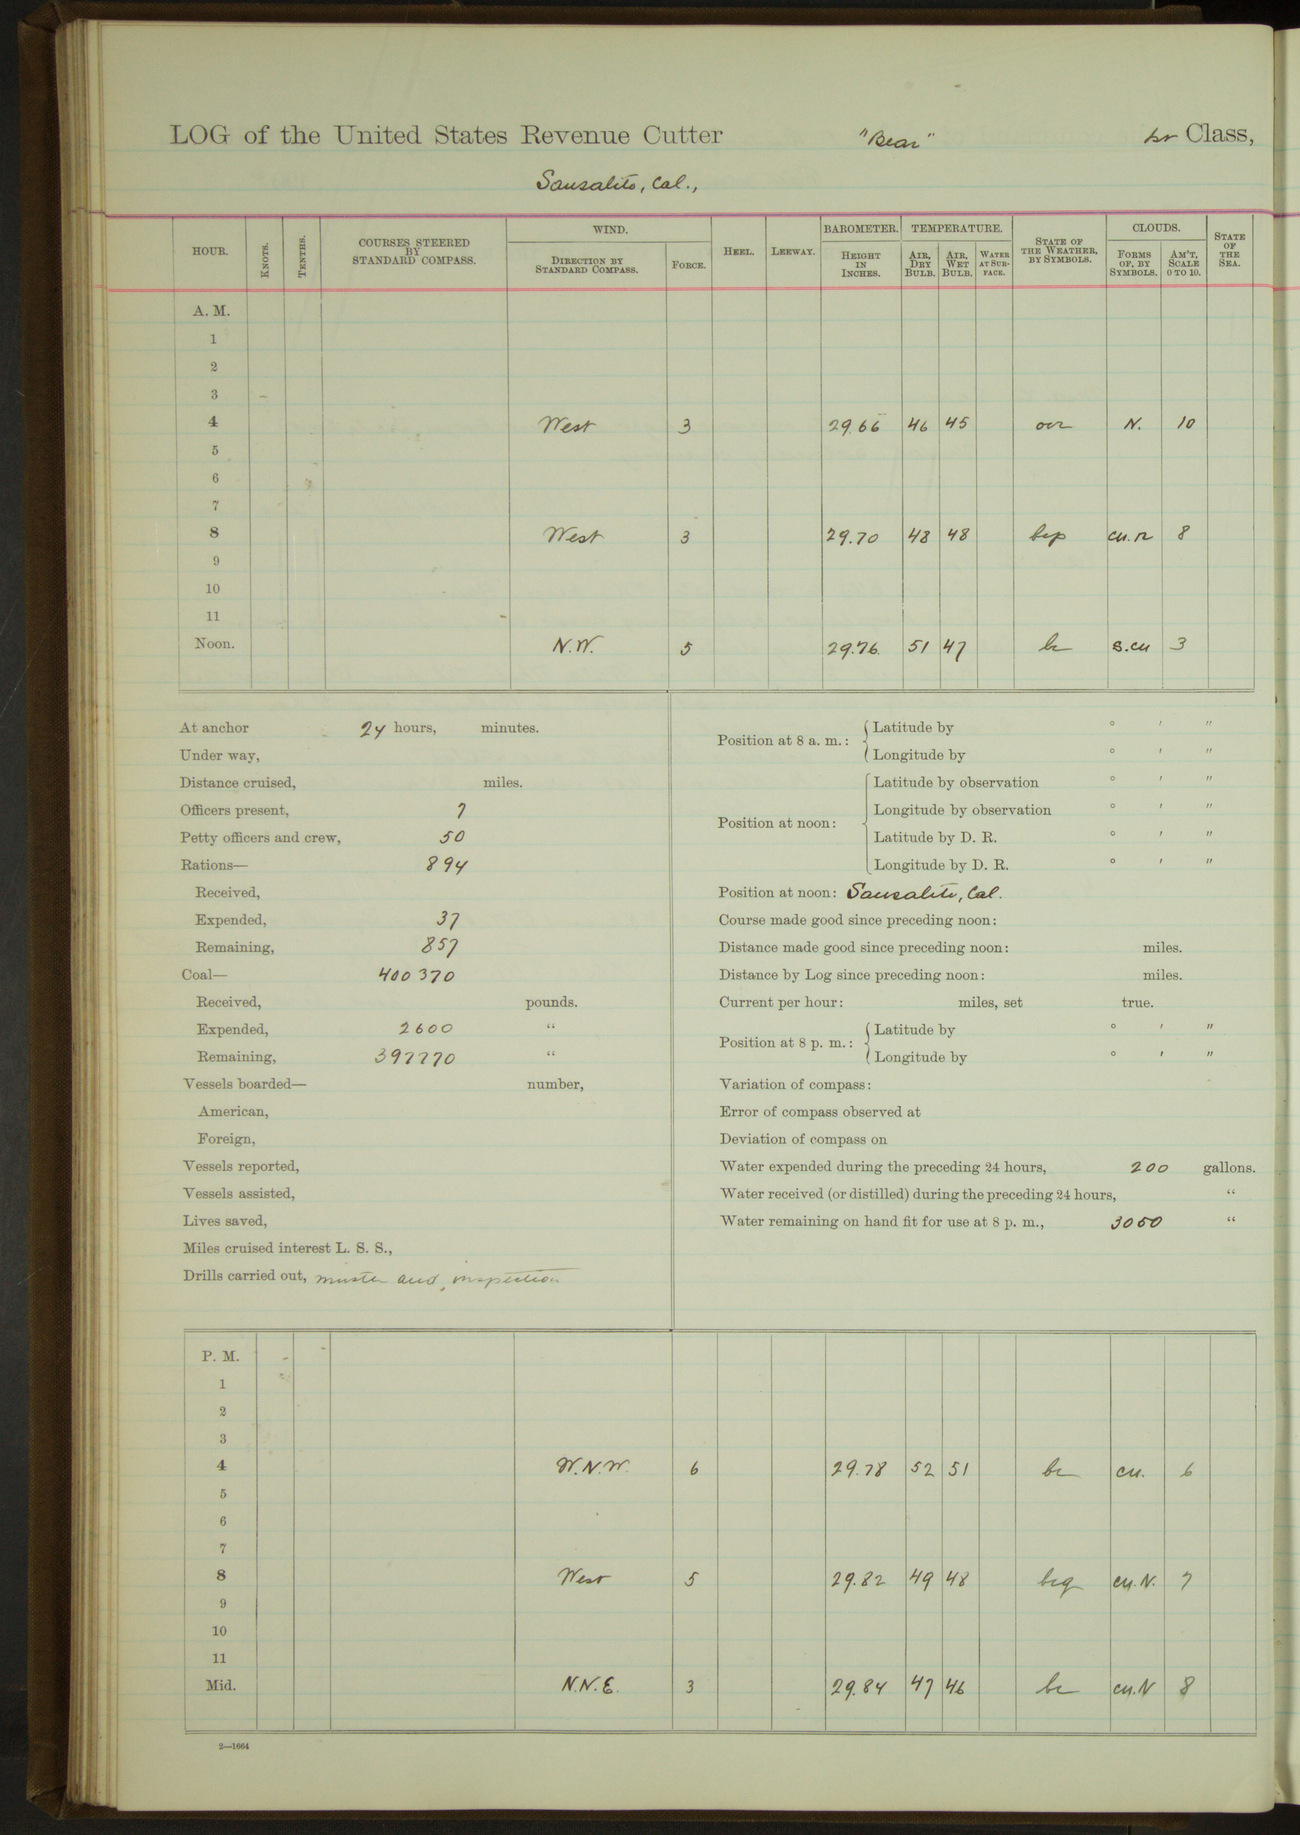 LOG of the United States Revenue Cutter "Bear" Class,
Sausalito, Cal.,
HOUR. KNOTS. TENTHS. COURSES STEERED BY STANDARD COMPASS. WIND. DIRECTION BY STANDARD COMPASS. FORCE. HEEL. LEEWAY. BAROMETER. HEIGHT IN INCHES. TEMPERATURE. AIR, DRY BULB. AIR, WET BULB. WATER AT SURFACE. STATE OF THE WEATHER, BY SYMBOLS. CLOUDS. FORMS OF, BY SYMBOLS. AM'T, SCALE 0 TO 10. STATE OF THE SEA.
A. M.
1
2
3
4 West 3 29.66 46 45 N. 10
5
6
7
8 West 3 29.70 48 48 bcp cu.n 8
9
10
11
Noon. N.W. 5 29.76 51 47 bc s.cu 3
At anchor 24 hours, minutes.
Under way,
Distance cruised, miles.
Officers present, 7
Petty officers and crew, 50
Rations— 894
Received,
Expended, 37
Remaining, 857
Coal— 400370
Received, pounds.
Expended, 2600 "
Remaining, 397770 "
Vessels boarded— number,
American,
Foreign,
Vessels reported,
Vessels assisted,
Lives saved,
Miles cruised interest L. S. S.,
Drills carried out, muster and inspection
Position at 8 a. m.: Latitude by ° ′ ″
Longitude by ° ′ ″
Position at noon: Latitude by observation ° ′ ″
Longitude by observation ° ′ ″
Latitude by D. R. ° ′ ″
Longitude by D. R. ° ′ ″
Position at noon: Sausalito, Cal.
Course made good since preceding noon:
Distance made good since preceding noon: miles.
Distance by Log since preceding noon: miles.
Current per hour: miles, set true.
Position at 8 p. m.: Latitude by ° ′ ″
Longitude by ° ′ ″
Variation of compass:
Error of compass observed at
Deviation of compass on
Water expended during the preceding 24 hours, 200 gallons.
Water received (or distilled) during the preceding 24 hours, "
Water remaining on hand fit for use at 8 p. m., 3050 "
P. M.
1
2
3
4 W.N.W. 6 29.78 52 51 bc cu. 6
5
6
7
8 West 5 29.82 49 48 bcq cu.N. 7
9
10
11
Mid. N.N.E. 3 29.84 47 46 bc cu.N 8
2—1664